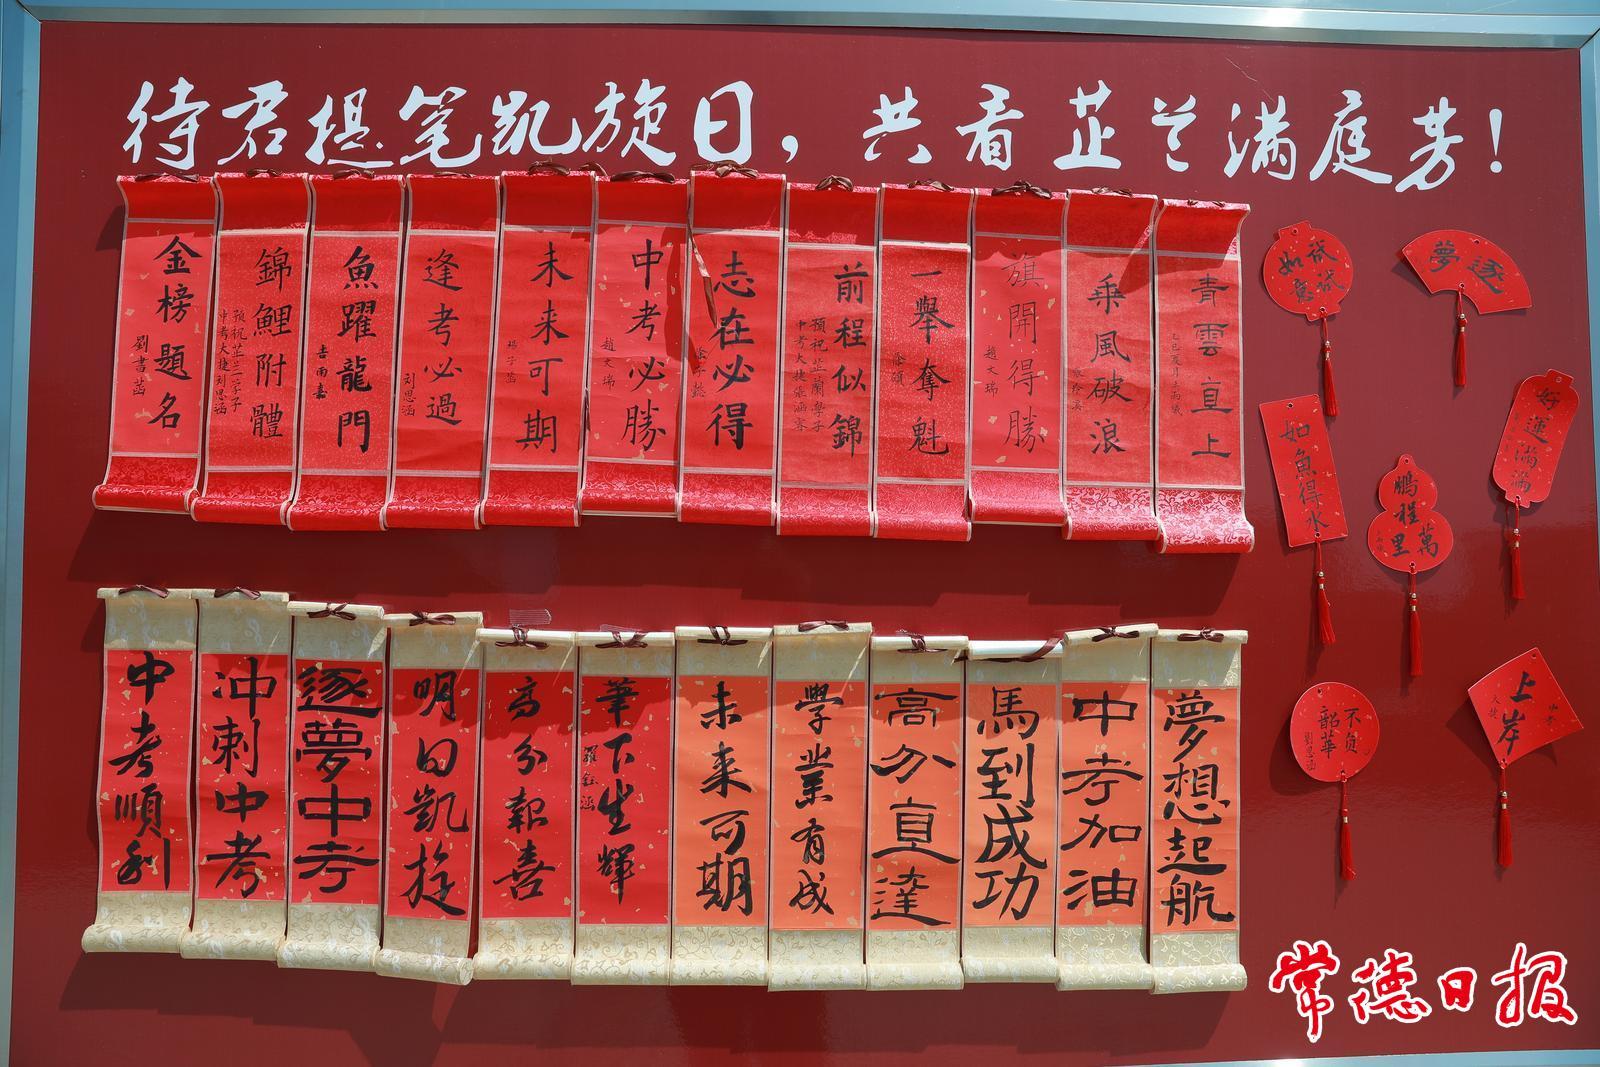 待君提笔凯旋日，共看芷兰满庭芳！
金榜題名
劉書菡
錦鯉附體
預祝芷兰学子
中考大捷刘思涵
魚躍龍門
吉雨嘉
逢考必過
刘思涵
未来可期
楊子菡
中考必勝
趙文瑞
志在必得
前程似錦
預祝芷蘭學子
一舉奪魁
旗開得勝
趙文瑞
乘風破浪
青雲直上
中考順利
冲刺中考
逐夢中考
明日凯旋
高分報喜
筆下生輝
羅鈺涵
未来可期
學業有成
高分直達
馬到成功
中考加油
夢想起航
試試如意
逐夢
如魚得水
鵬程萬里
好運滿滿
不負韶華
劉思涵
上岸
中考大捷
常德日报